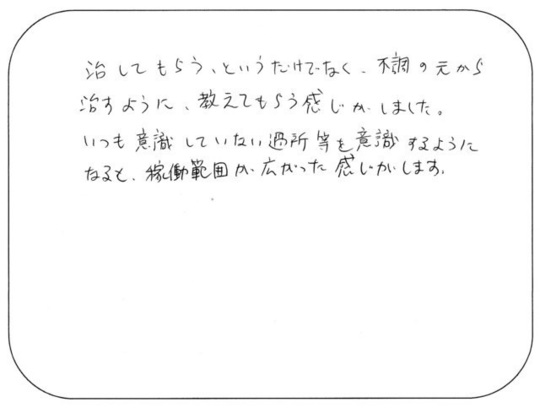 治してもらう、というだけでなく、不調の元から
治すように、教えてもらう感じがしました。
いつも意識していない過所等を意識するように
なると、稼働範囲が広がった感じがします。